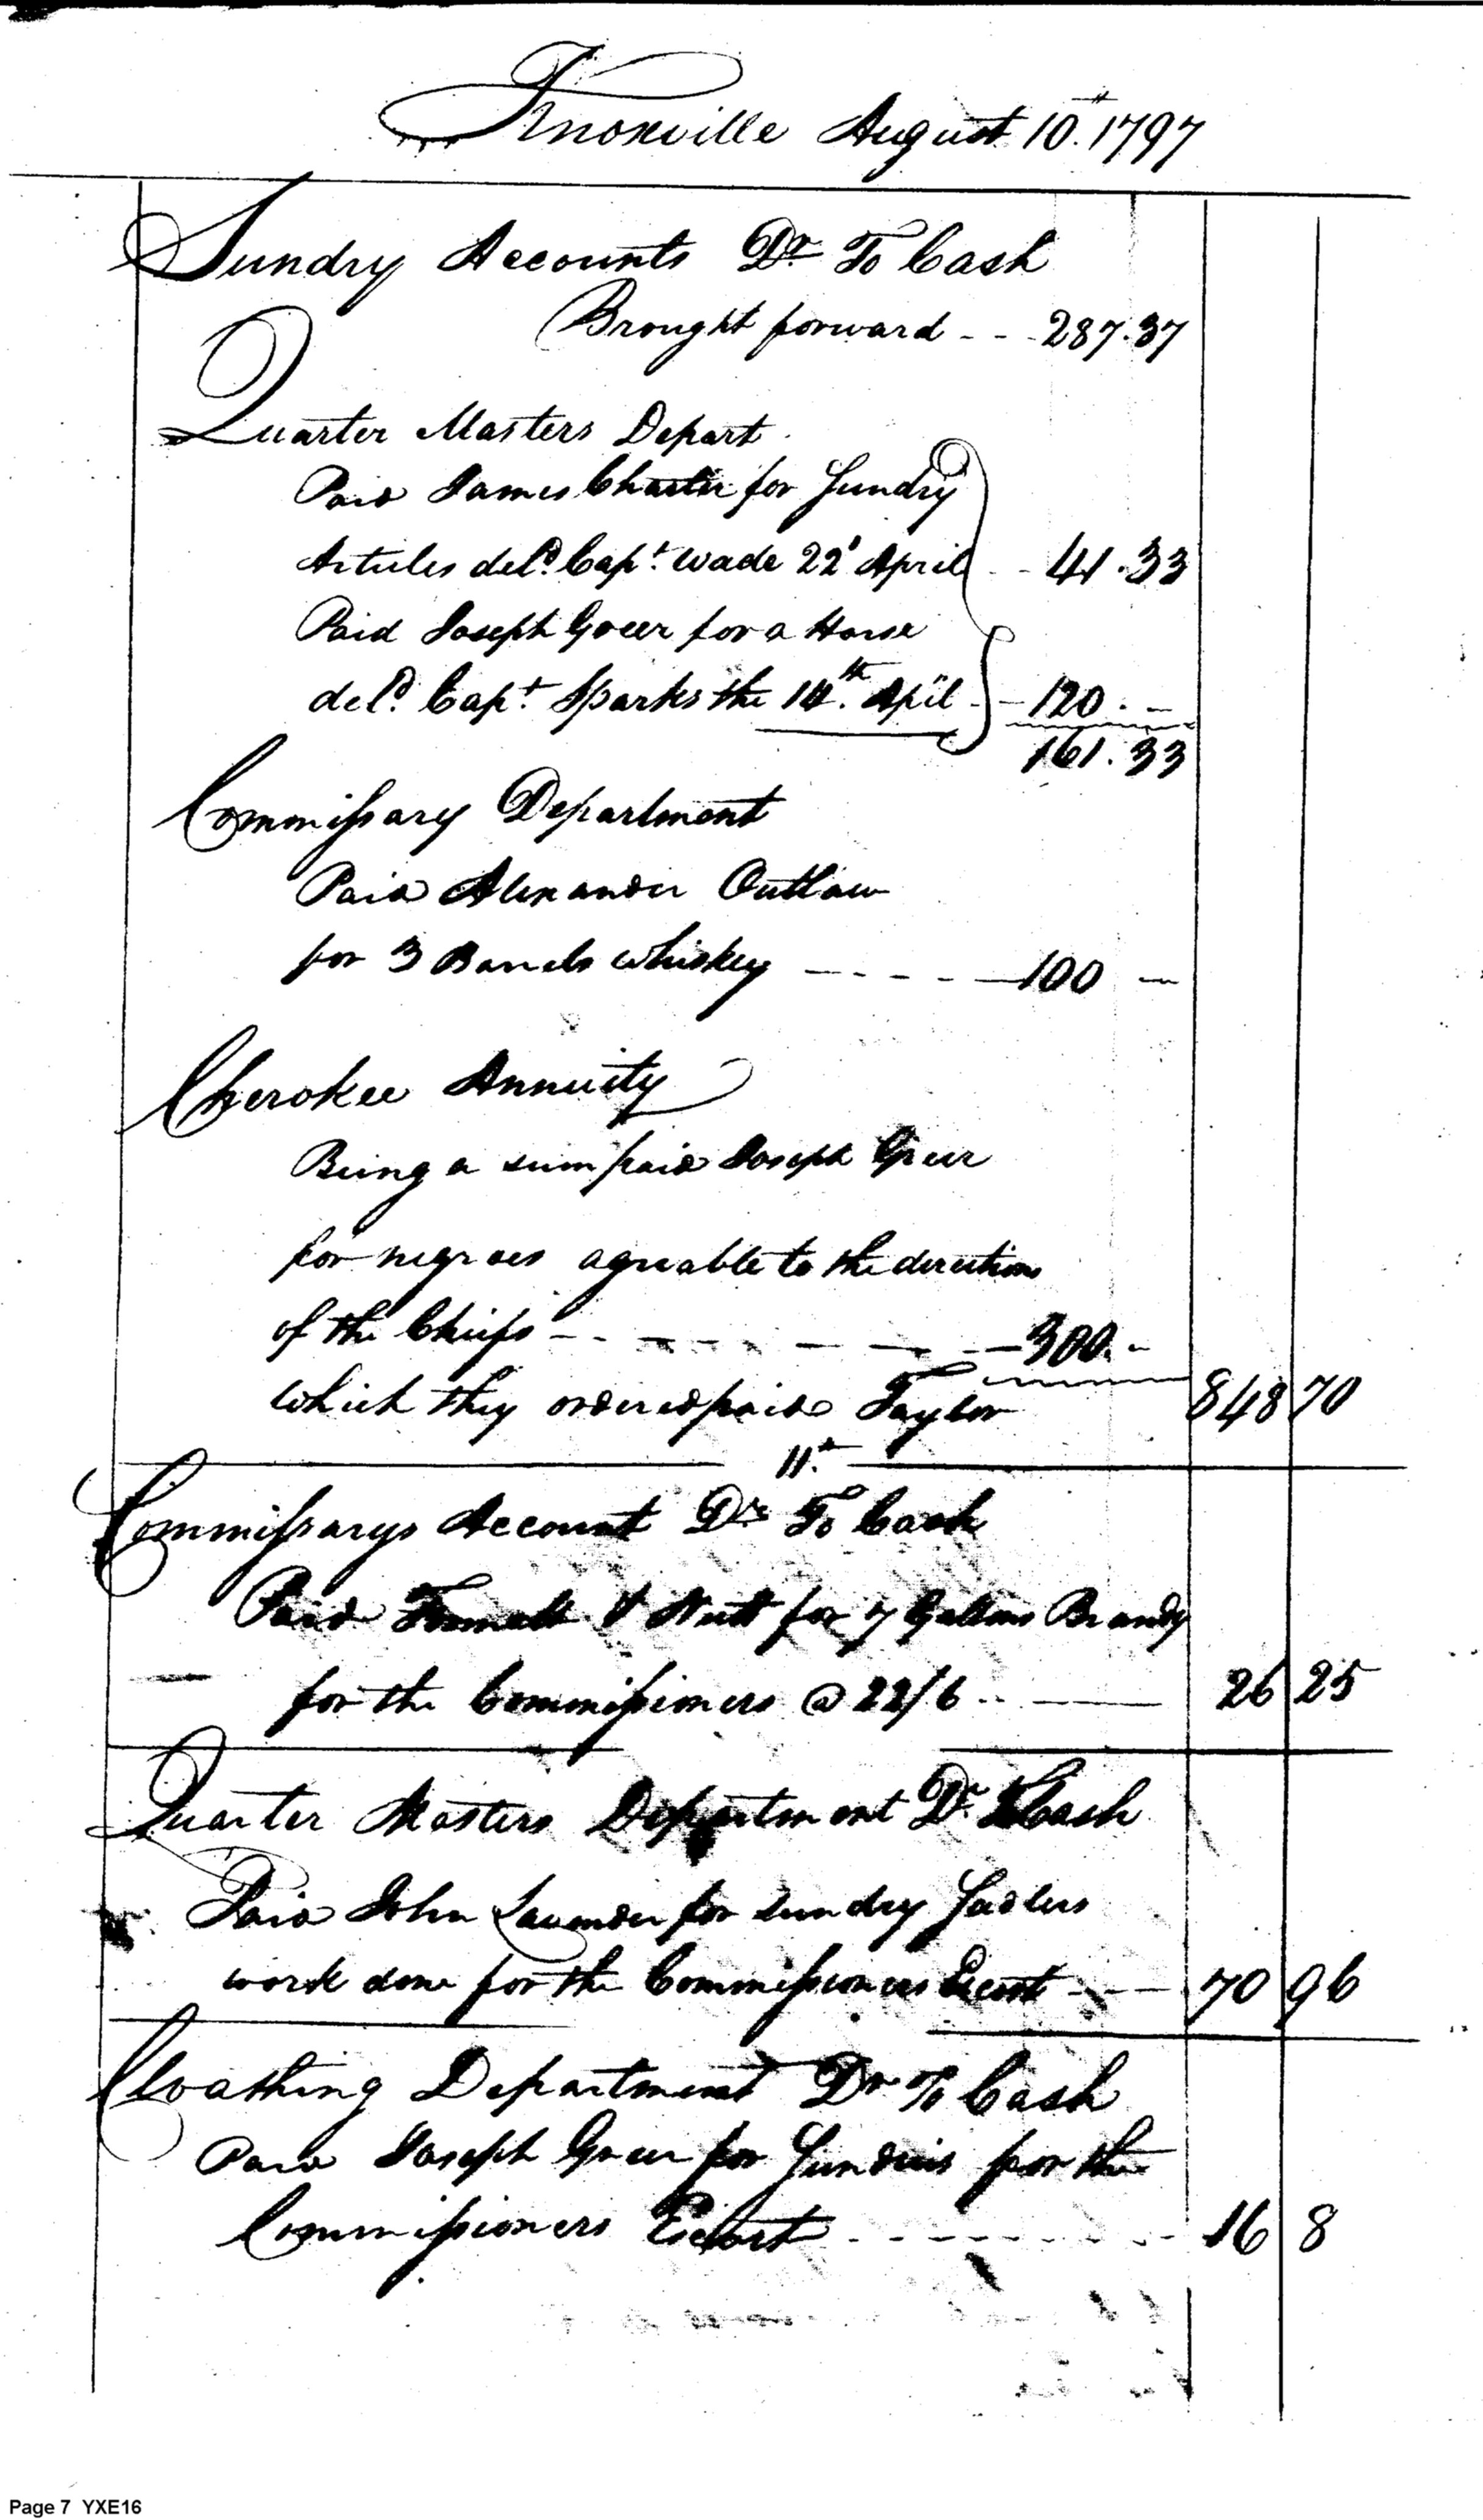 Knoxville August 10.th 1797
Sundry Accounts Dr. To Cash
Brought forward - - - 287.37
Quarter Masters Depart.
Paid James Charter for Sundry
Articles deld. Capt. Wade 22d April - - 41.33
Paid Joseph Greer for a Horse
deld. Capt. Sparks the 14.th April - - 120. -
161.33
Commissary Department
Paid Alexander Outlaw
for 3 Barrels Whiskey - - - - - 100 -
Cherokee Annuity
Being a sum paid Joseph Greer
for negroes agreable to the directions
of the Chiefs - - - - - - - - 300. -
which they ordered paid Taylor 848 70
11.th
Commissarys Account Dr. To Cash
Paid & Nutt for 7 Gallons Brandy
for the Commissioners @ 22/6 - - - 26 25
Quarter Masters Department Dr. To Cash
Paid John Lavender for sundry Sadlers
work done for the Commissioners Escort - - - 70 96
Cloathing Department Dr. To Cash
Paid Joseph Greer for Sundries for the
Commissioners Escort - - - - - - - 16 8
Page 7 YXE16